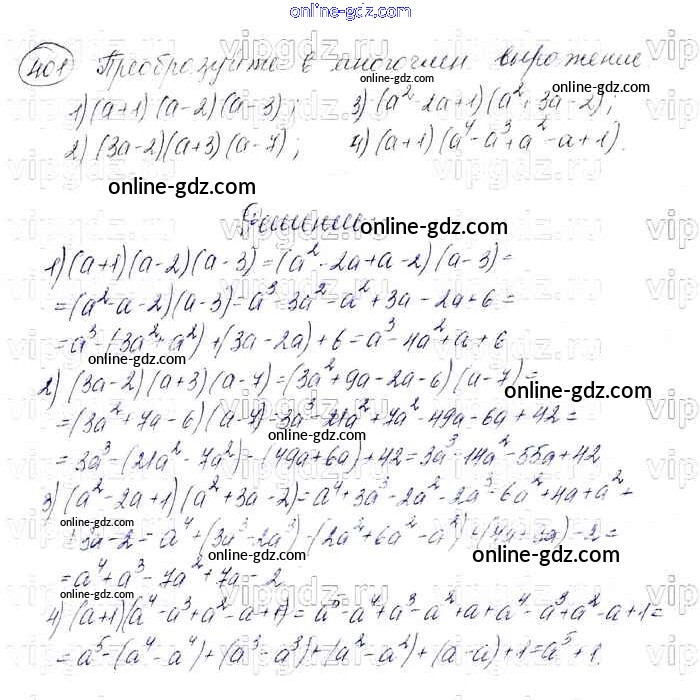 online-gdz.com
401 Преобразуйте в многочлен выражение
online-gdz.com
1) (a+1)(a-2)(a-3); 3) (a² 2a+1)(a²+3a-2);
2) (3a-2)(a+3)(a-7); 4) (a+1)(a⁴-a³+a²-a+1).
online-gdz.com
Решение
online-gdz.com
1) (a+1)(a-2)(a-3)=(a²-2a+a-2)(a-3)=
=(a²-a-2)(a-3)=a³-3a²-a²+3a-2a+6=
online-gdz.com
=a³-(3a²+a²)+(3a-2a)+6=a³-4a²+a+6
online-gdz.com
2) (3a-2)(a+3)(a-7)=(3a²+9a-2a-6)(a-7)=
online-gdz.com
=(3a²+7a-6)(a-7)=3a³-21a²+7a²-49a-6a+42=
online-gdz.com
=3a³-(21a²-7a²)-(49a+6a)+42=3a³-14a²-55a+42
online-gdz.com
3) (a²-2a+1)(a²+3a-2)=a⁴+3a³-2a²-2a³-6a²+4a+a²+
online-gdz.com
+3a-2=a⁴+(3a³-2a³)-(2a²+6a²-a²)+(4a+3a)-2=
online-gdz.com
online-gdz.com
=a⁴+a³-7a²+7a-2
online-gdz.com
4) (a+1)(a⁴-a³+a²-a+1)=a⁵-a⁴+a³-a²+a+a⁴-a³+a²-a+1=
=a⁵-(a⁴-a⁴)+(a³-a³)+(a²-a²)+(a-a)+1=a⁵+1.
online-gdz.com
online-gdz.com